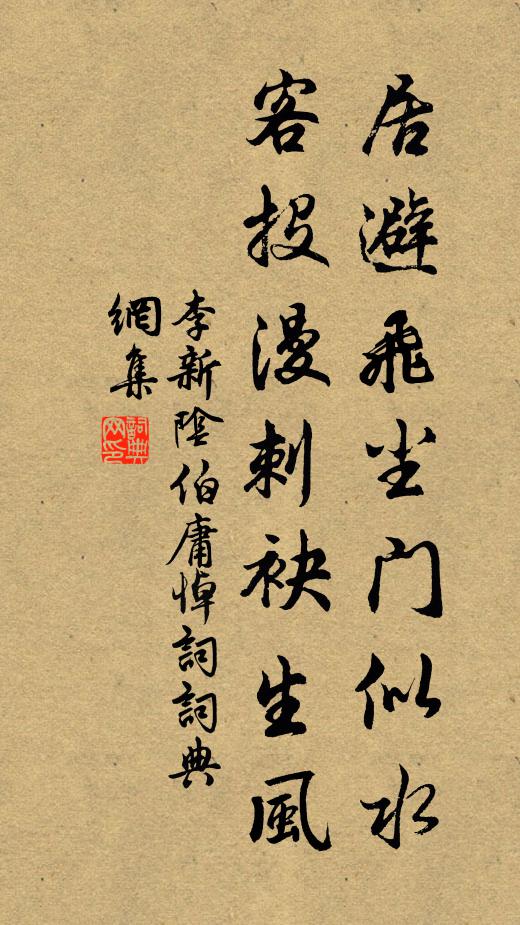 居避飛尘门似水
客投漫刺袂生風
李新陰伯庸悼詞詞典
網集
詞典
网印